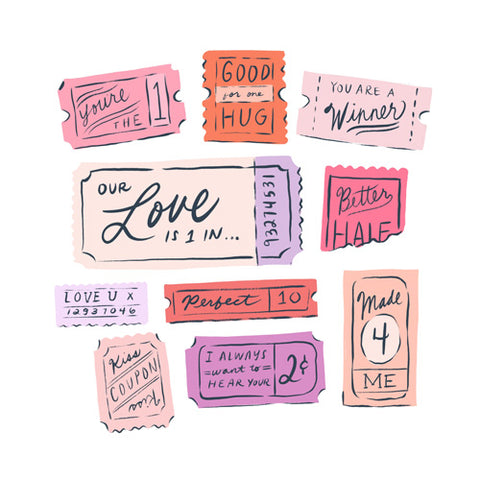 you're
THE 1
GOOD
for one
HUG
YOU ARE A
Winner
OUR
Love
IS 1 IN...
93274531
Better
HALF
LOVE U X
12937046
Perfect 10
Made
4
ME
Kiss
COUPON
Kiss
I ALWAYS
want to
HEAR YOUR
2¢